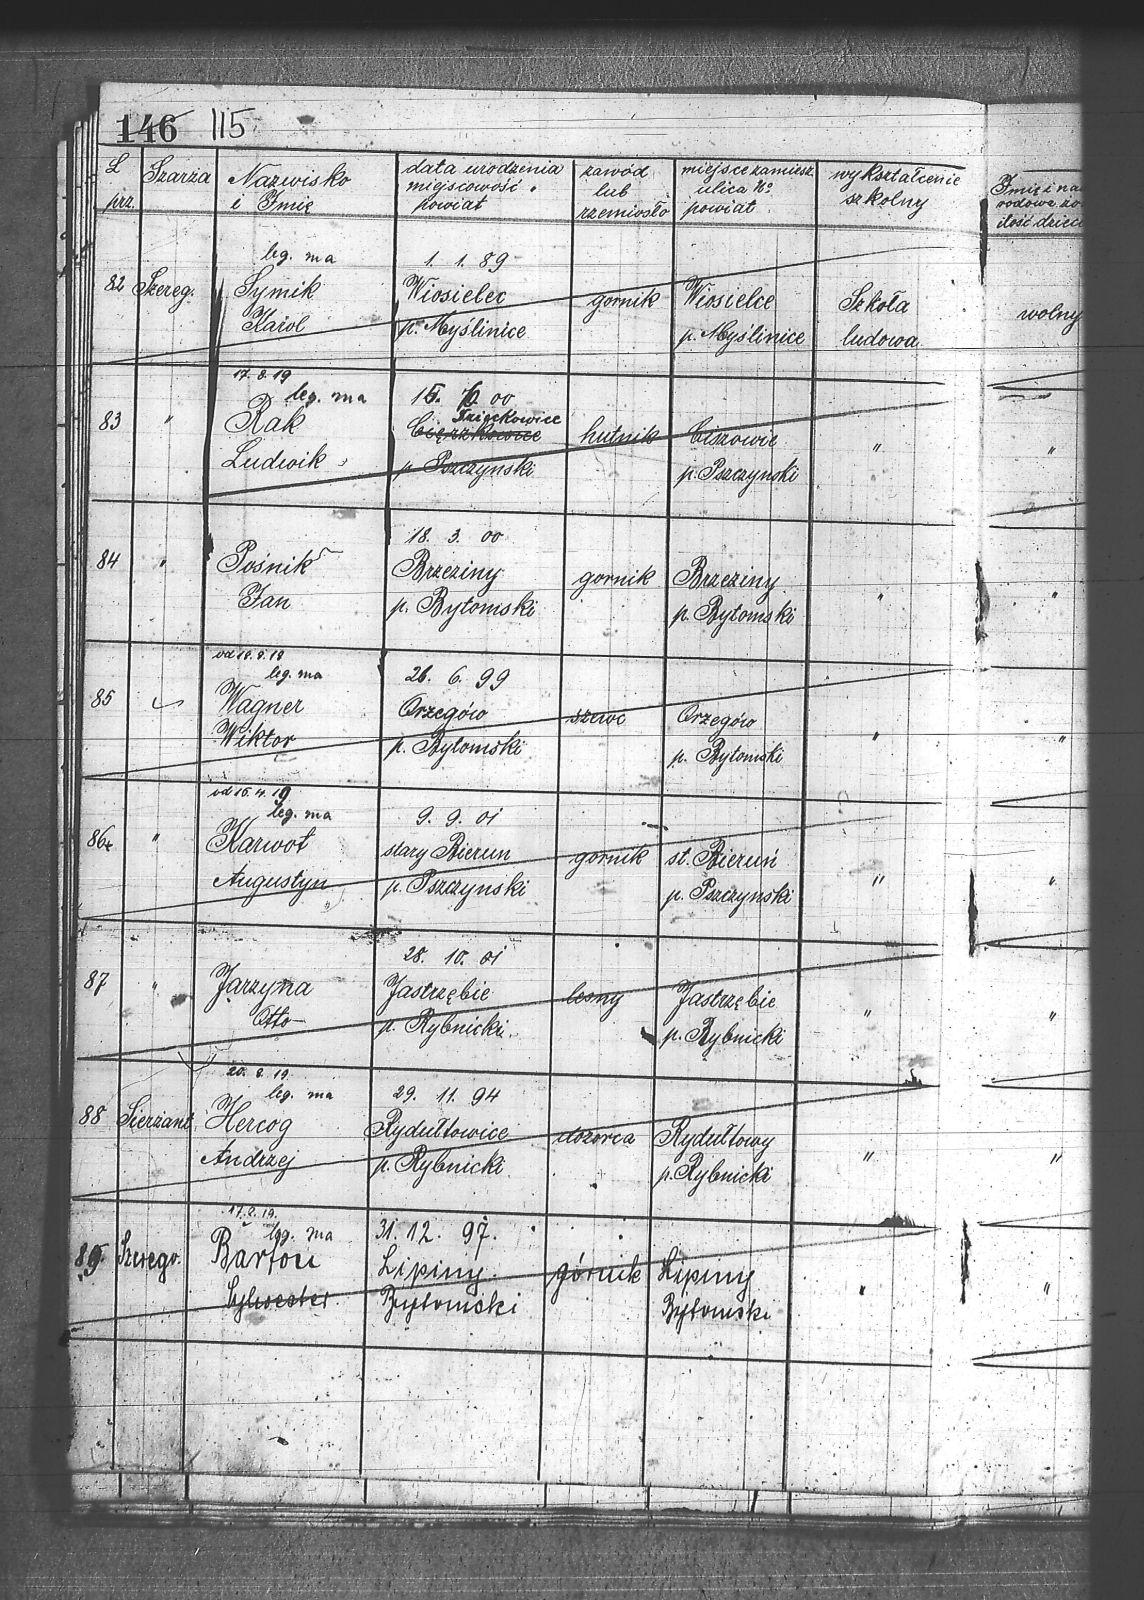 146 115
L prz
Szarża
Nazwisko i Imię
data urodzenia miejscowość powiat
zawód lub rzemiosło
miejsce zamiesz. ulica No powiat
wykształcenie szkolny
Imię i na
rodowa żo
ilość dzieci
82 Szereg.
leg. ma
Symik
Karol
1. 1. 89
Wiosielec
p. Myślinice
gornik
Wiosielce
p. Myślinice
Szkoła
ludowa
wolny
83 "
17. 8. 19
leg. ma
Rak
Ludwik
15. 00
Cięrzkowice
p. Pszczynski
hutnik
Ciszowie
p. Pszczynski
"
"
84 "
Pośnik
Jan
18. 3. 00
Brzeziny
p. Bytomski
gornik
Brzeziny
p. Bytomski
"
"
85
leg. ma
Wagner
Wiktor
26. 6. 99
Orzegów
p. Bytomski
szewc
Orzegów
p. Bytomski
"
"
86 "
od 16. 4. 19
leg. ma
Karwot
Augustyn
9. 9. 01
stary Bierun
p. Pszczynski
gornik
st. Bieruń
p. Pszczynski
"
"
87 "
Jarzyna
Otto
28. 10. 01
Jastrzębie
p. Rybnicki
lesny
Jastrzębie
p. Rybnicki
"
"
88 Sierżant
20. 8. 19
leg. ma
Hercog
Andrzej
29. 11. 94
Rydułtowice
p. Rybnicki
dozorca
Rydułtowy
p. Rybnicki
"
"
89. Szerego.
17. 8. 19.
leg. ma
Barton
Sylwester
31. 12. 97.
Lipiny
Bytomski
górnik
Lipiny
Bytomski
"
"